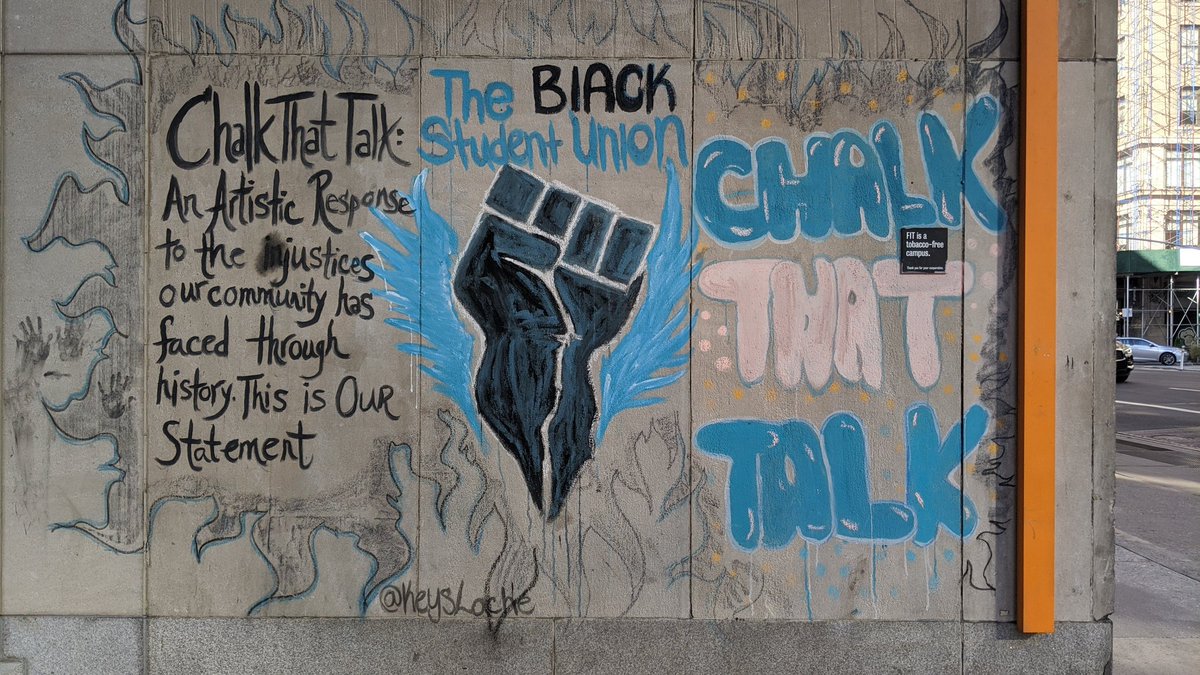 Chalk That Talk:
An Artistic Response
to the injustices
our community has
faced through
history. This is OUR
Statement
The BlACK
Student Union
CHALK
THAT
TALK
FIT is a
tobacco-free
campus.
Thank you for your cooperation.